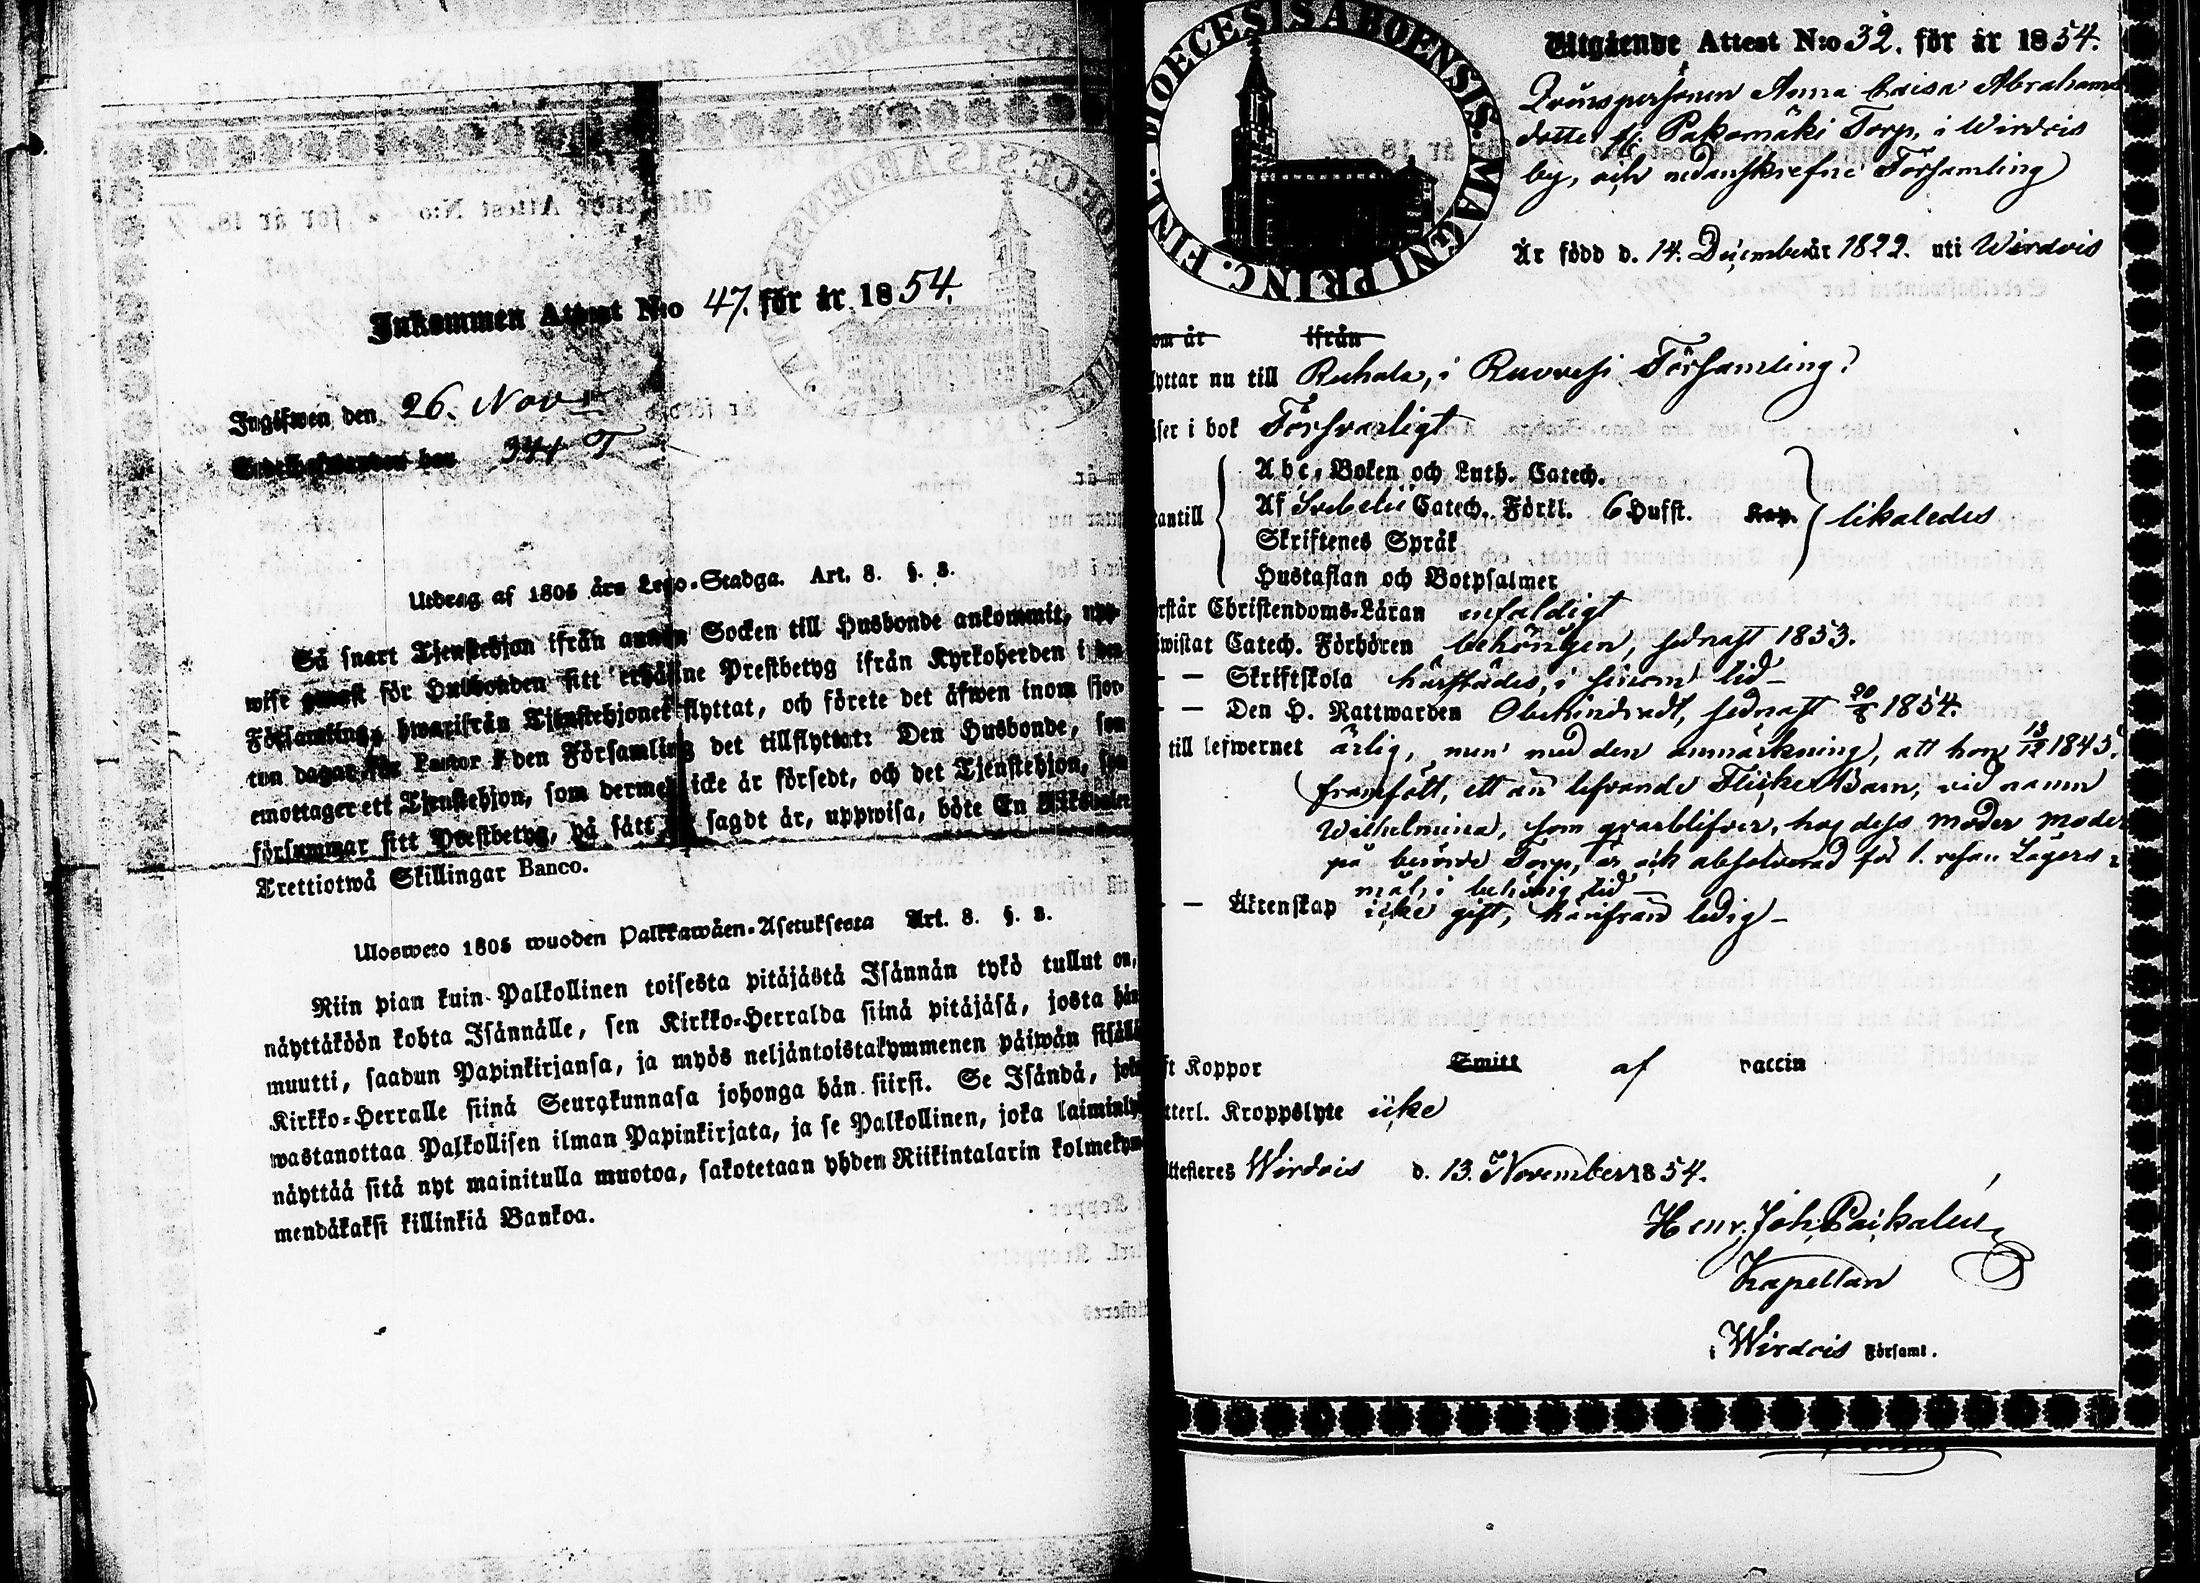 Inkommen Attest N:o 47. för år 1854.
Ingifwen den 26. Nov
344 T
Utdrag af 1805 års Lego-Stadga. Art. 8. §. 3.
Så snart Tjenstehjon ifrån annan Socken till Husbonde ankommit, upp-
wise genast för Husbonden sitt erhållne Prestbetyg ifrån Kyrkoherden i den
Församling, hwarifrån Tjenstehjonet flyttat, och förete det äfwen inom fjor-
ton dagar för Pastor i den Församling det tillflyttat: Den Husbonde, som
emottager ett Tjenstehjon, som dermed icke är försedt, och det Tjenstehjon, som
försummar sitt Prestbetyg, på sätt sagdt är, uppwisa, böte En Riksdaler
Trettiotwå Skillingar Banco.
Ulosweto 1805 wuoden Palkkawäen-Asetuksesta Art. 8. §. 3.
Niin pian kuin Palkollinen toisesta pitäjästä Isännän tykö tullut on,
näyttäköön kohta Isännälle, sen Kirkko-Herralda siinä pitäjäsä, josta hän
muutti, saadun Papinkirjansa, ja myös neljäntoistakymmenen päiwän sisällä
Kirkko-Herralle siinä Seurakunnasa johonga hän siirsi. Se Isändä, joka
wastanottaa Palkollisen ilman Papinkirjata, ja se Palkollinen, joka laiminlyö
näyttää sitä nyt mainitulla muotoa, sakotetaan yhden Riikintalarin kolmekym-
mendäkaksi killinkiä Bankoa.
DIOECESIS ABOENSIS. MAGNI PRINC. FINL.
Utgående Attest N:o 32. för år 1854.
Qvinspersonen Anna Caisa Abrahams
dotter fr. Pakomäki Torp, i Wirdois
by, och nedanskrefne Församling
Är född d. 14. December år 1822. uti Wirdois
om år ifrån
lyttar nu till Ruhala, i Ruovesi Församling.
äser i bok Försvarligt
Abc-Boken och Luth. Catech.
antill Af Svebelii Catech. Förkl. 6 Hufst. Kap. likaledes
Skriftenes Språk
Hustaflan och Botpsalmer
rstår Christendoms-Läran enfaldigt
wistat Catech. Förhören behörigen, sednast 1853.
— Skriftskola härstädes, i sinom tid —
— Den H. Nattwarden Obehindradt, sednast 20/8 1854.
till lefwernet ärlig, men med den anmärkning, att hon 13/12 1845.
framfödt, ett än lefvande Flicke Barn, vid namn
Wilhelmina, som qvarblifver, hos dess moder moder
på berörde Torp, är ock absolverad för 1. resan Lägers-
mål, i behörig tid —
— Äktenskap icke gift, härifrån ledig —
ft Koppor Smitt af vaccin
tterl. Kroppslyte icke
ttesteres Wirdois d. 13. November 1854.
Henr. Joh.
Kapellan
i Wirdois Församl.